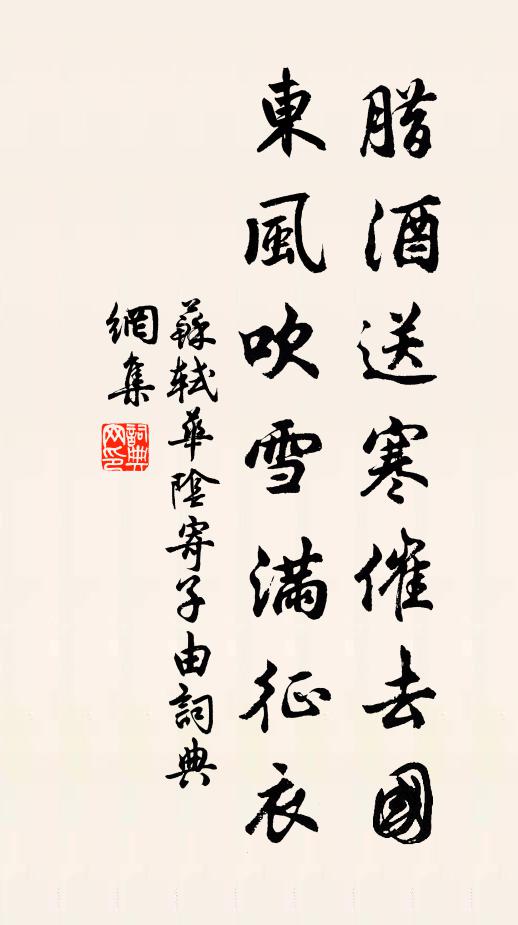 腊酒送寒催去國
東風吹雪滿征衣
蘇軾華陰寄子由詞典
網集
詞典
网印